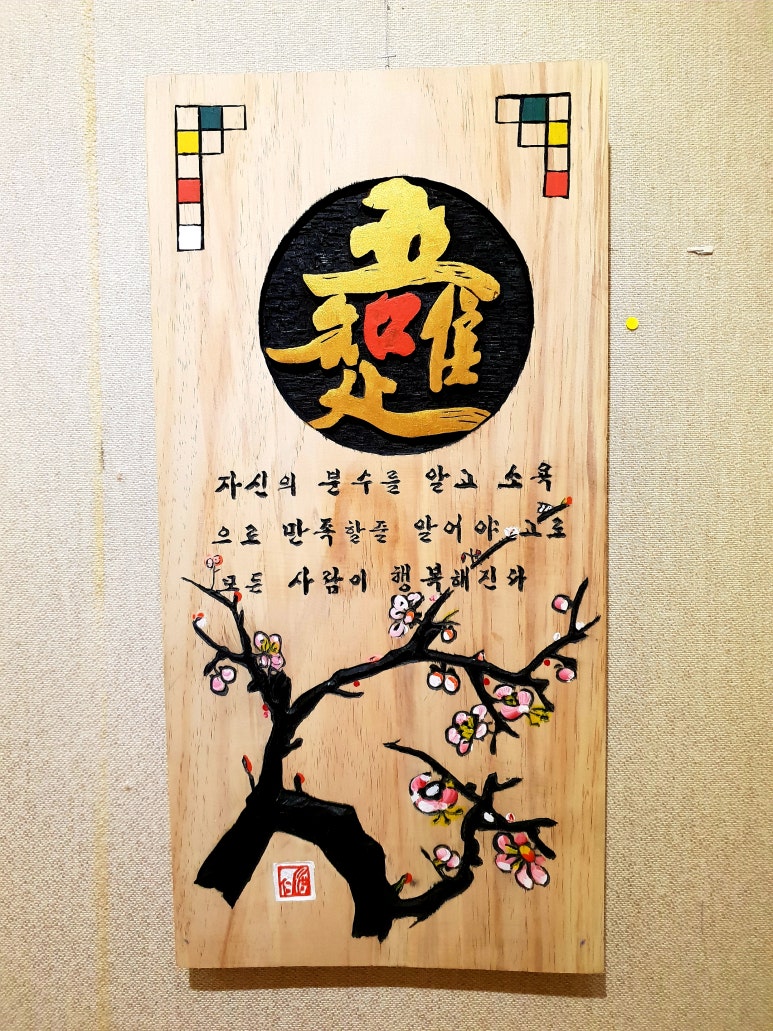 吾唯知足
자신의 분수를 알고 소욕
으로 만족할줄 알어야 고로
모든 사람이 행복해진다